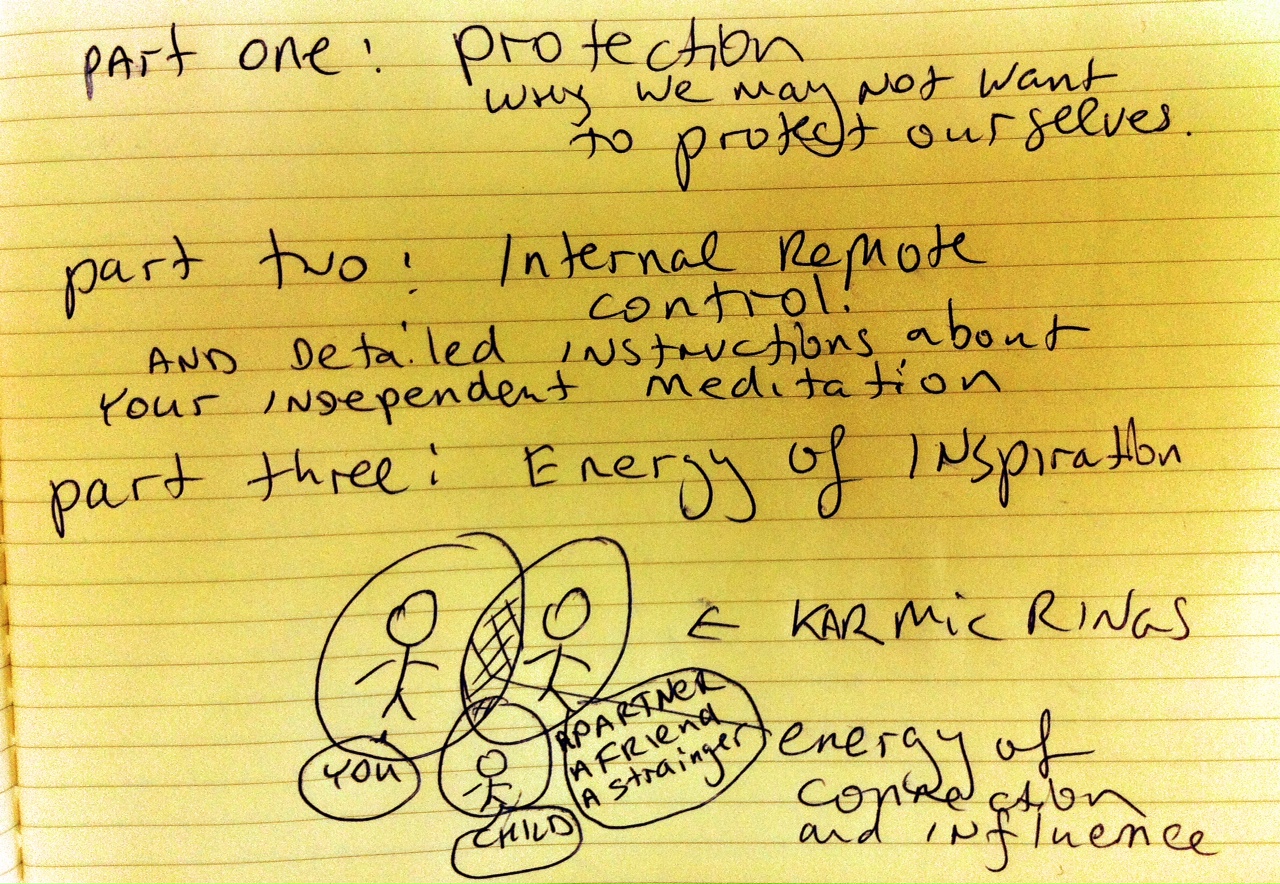 part one: protection
why we may not want
to protect ourselves.
part two: Internal Remote
control!
AND Detailed instructions about
Your independent meditation
part three: Energy of INspiration
← KARMic RINGS
A PARTNER
A FRIEND
A strainger
YOU
CHILD
energy of
connection
and influence